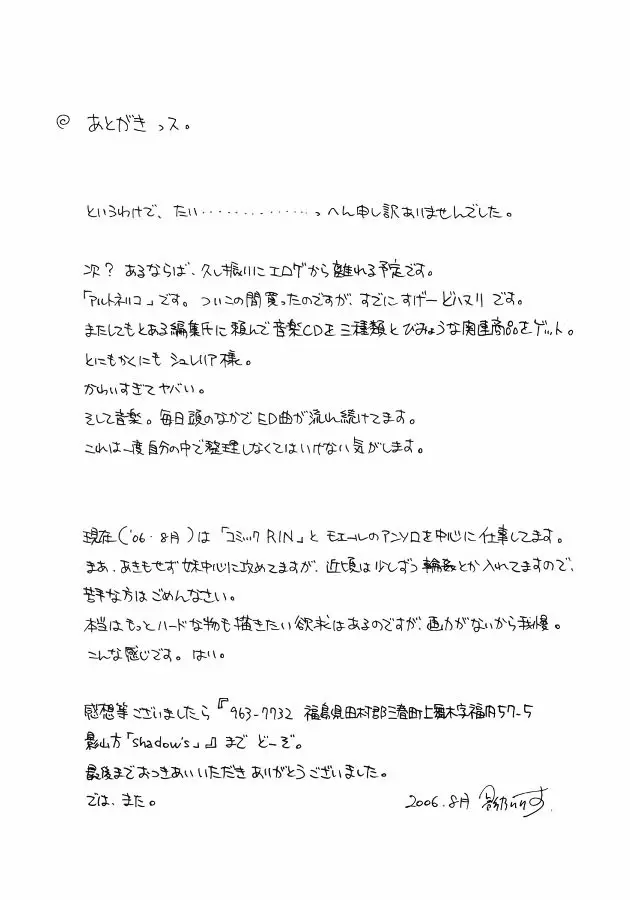 @ あとがきっス。
というわけで、たい・・・・・・・・・・・・・・っへん申し訳ありませんでした。
次? あるならば、久し振りにエロゲから離れる予定です。
「アルトネリコ」です。ついこの間買ったのですが、すでにすげービハマリです。
またしてもとある編集氏に頼んで音楽CDを三種類とびみょうな関連商品をゲット。
とにもかくにもシュレリア様。
かわいすぎてヤバい。
そして音楽。毎日頭のなかでED曲が流れ続けてます。
これは一度自分の中で整理しなくてはいけない気がします。
現在('06・8月)は「コミックRIN」とモエールのアンソロを中心に仕事してます。
まあ、あきもせず妹中心に攻めてますが、近頃は少しずつ輪姦とか入れてますので、
苦手な方はごめんなさい。
本当はもっとハードな物も描きたい欲求はあるのですが、画力がないから我慢。
こんな感じです。はい。
感想等ございましたら『963-7732 福島県田村郡三春町上舞木字福内57-5
影山方「shadow's」』までどーぞ。
最後までおつきあいいただきありがとうございました。
では、また。
2006.8月